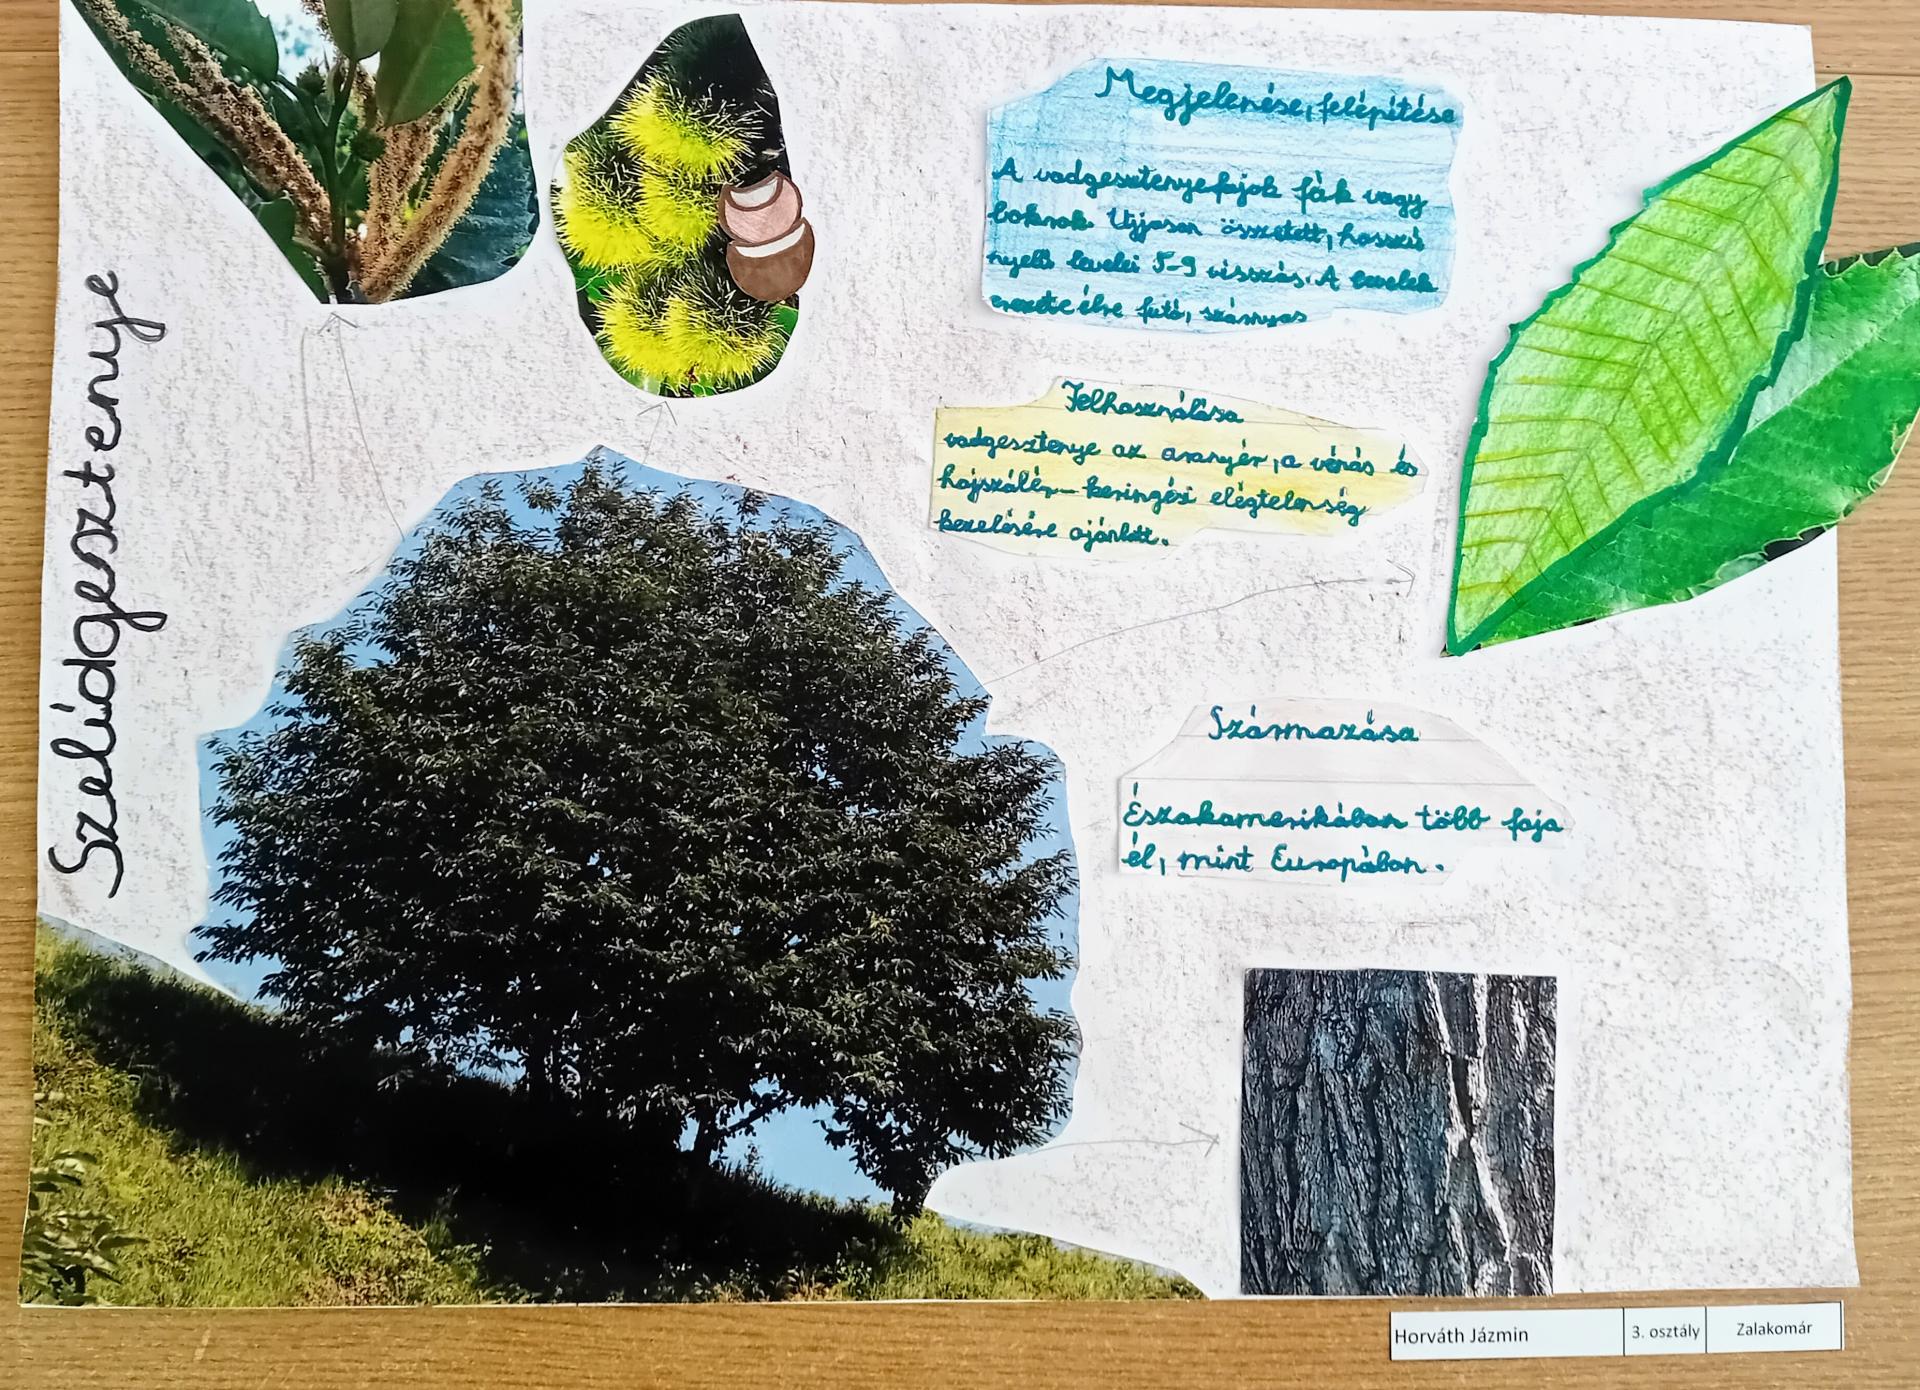 Szelídgesztenye
Megjelenése, felépítése
A vadgesztenyefajok fák vagy
bokrok. Ujjasan összetett, hosszú
nyelű levelei 5-9 visszás. A levelek
erezete élre futó, szárnyas
Felhasználása
vadgesztenye az aranyér, a vénás és
hajszálér- keringési elégtelenség
kezelésére ajánlott.
Származása
Északamerikában több faja
él, mint Európában.
Horváth Jázmin 3. osztály Zalakomár